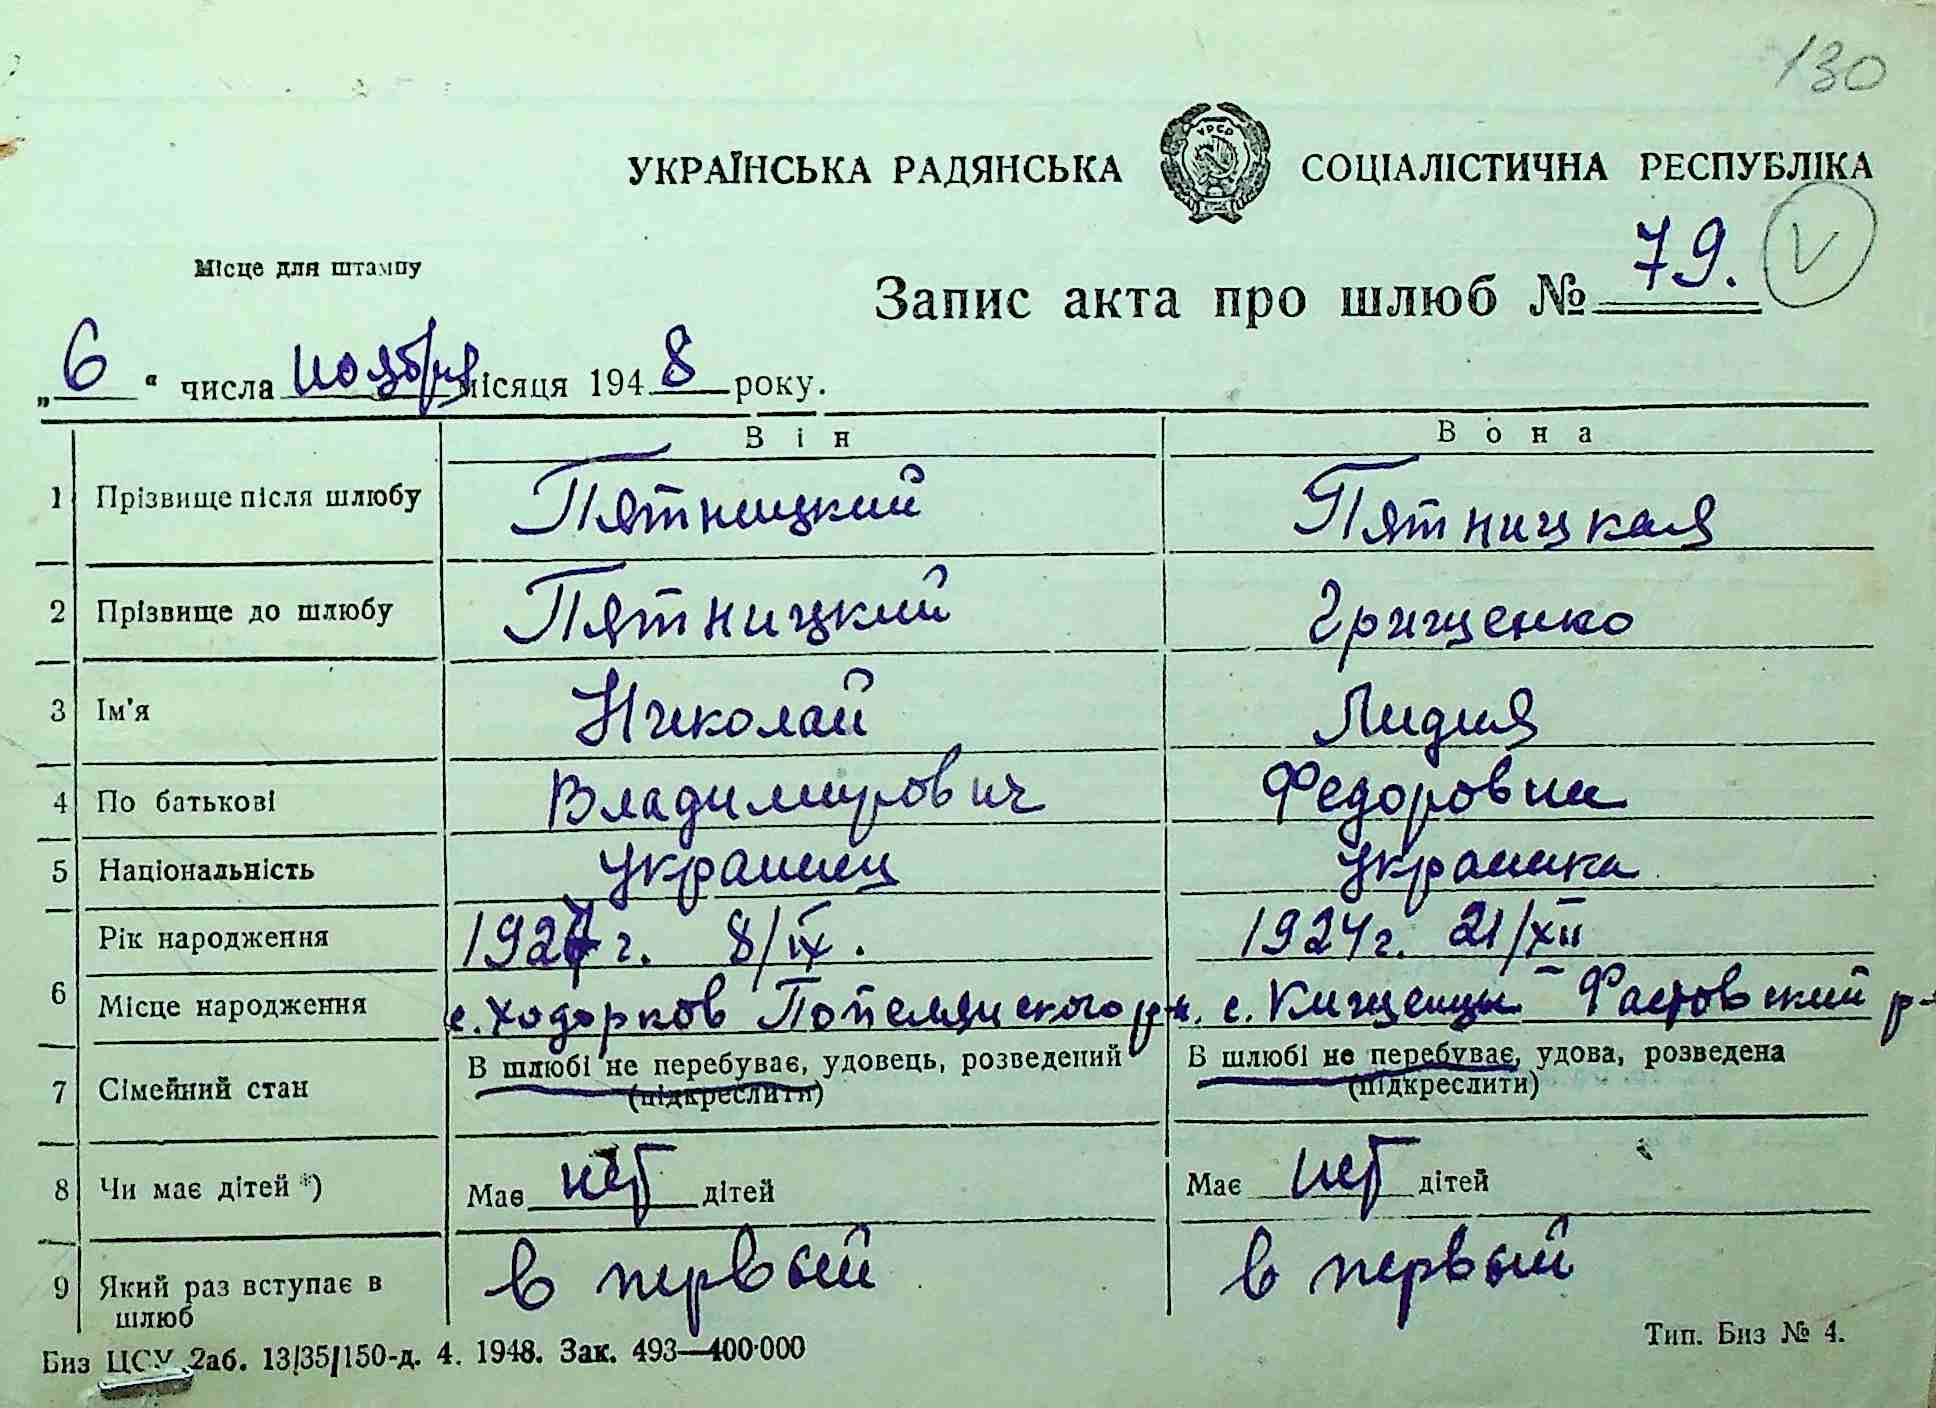 130
УКРАЇНСЬКА РАДЯНСЬКА СОЦІАЛІСТИЧНА РЕСПУБЛІКА
УРСР
Місце для штампу
Запис акта про шлюб № 79.
„6“ числа ноября місяця 1948 року.
Він Вона
1 Прізвище після шлюбу Пятницкий Пятницкая
2 Прізвище до шлюбу Пятницкий Грищенко
3 Ім'я Николай Лидия
4 По батькові Владимирович Федоровна
5 Національність украинец украинка
Рік народження 1927 г. 8/IX. 1924 г. 21/XII
6 Місце народження с. Ходорков Попелянского р-н. с. Фастовский р-
7 Сімейний стан В шлюбі не перебуває, удовець, розведений В шлюбі не перебуває, удова, розведена
(підкреслити) (підкреслити)
8 Чи має дітей *) Має нет дітей Має нет дітей
9 Який раз вступає в шлюб в первый в первый
Биз ЦСУ 2аб. 13/35/150-д. 4. 1948. Зак. 493—400·000 Тип. Биз № 4.